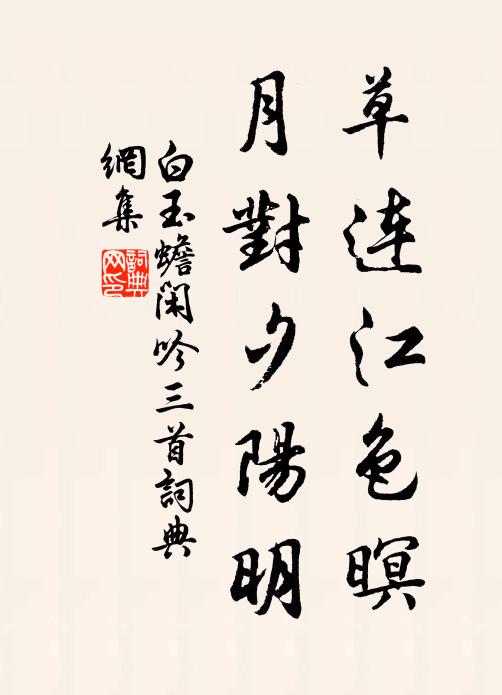 草連江色暝
月對夕陽明
白玉蟾閑吟三首詞典
網集
詞典网印